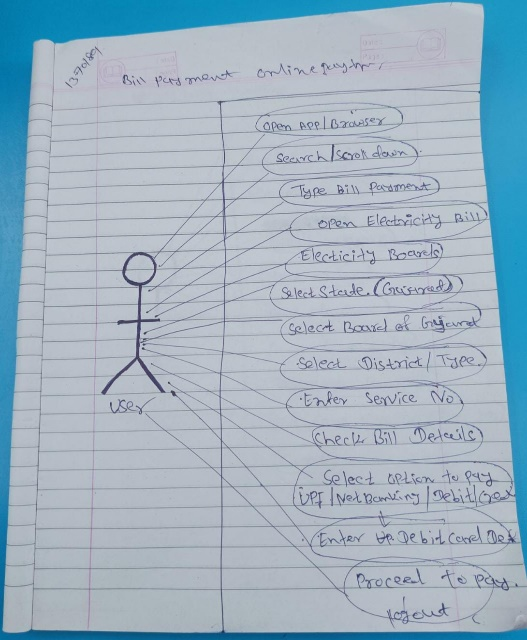 Bill Payment online paytm,
Open APP/Browser
Search/scroll down.
Type Bill Payment
open Electricity Bill
Electicity Boards
Select State. (Gujurad)
Select Board of Gujarat
Select District/Type.
Enter Service No
Check Bill Details
Select option to pay
UPI/NetBanking/Debit/
Enter Debit card
Proceed to pay.
logout
user